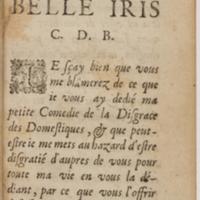 BELLE IRIS
C. D. B.
JE sçay bien que vous
me blâmerez de ce que
ie vous ay dedié ma
petite Comedie de la Disgrace
des Domestiques, & que peut-
estre ie me mets au hazard d'estre
disgratié d'aupres de vous pour
toute ma vie en vous la dé-
diant, par ce que vous l'offrir